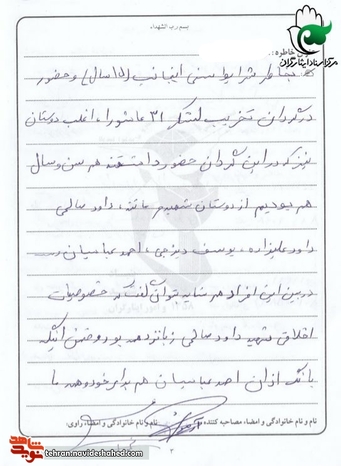 بسم رب الشهداء
مرکز اسناد ایثارگران
خاطره:
بخاطر شرایط سنی اینجانب (۱۵ سال) و حضور
در گردان تخریب لشکر ۳۱ عاشورا، اغلب دوستان
نیز که در این گردان حضور داشتند هم سن و سال
هم بودیم از دوستان شهیدم مانند، داود سالمی
داود علیزاده، یوسف دیزجی، احمد عباسیان
در بین این افراد هم شاید بتوان گفت که خصوصیات
اخلاقی شهید داود سالمی زبانزد همه بود و ضمن اینکه
اذان احمد عباسیان هم برای خود و همه ما
نام و نام خانوادگی و امضاء مصاحبه کننده
نام و نام خانوادگی و امضاء راوی:
۳
نوید شاهد
tehran.navideshahed.com